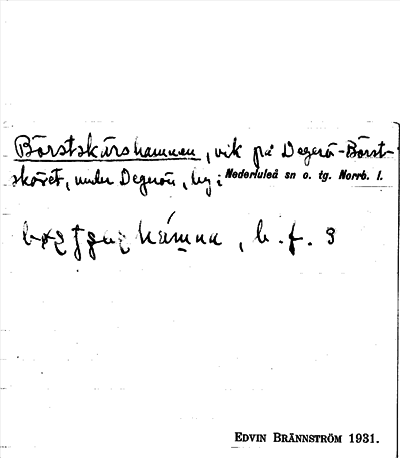 Börstskärshamnen, vik på Degerö-Börst-
skäret, under Degerön, by i Nederluleå sn o. tg. Norrb. l.
hamna, b. f. 3
EDVIN BRÄNNSTRÖM 1931.